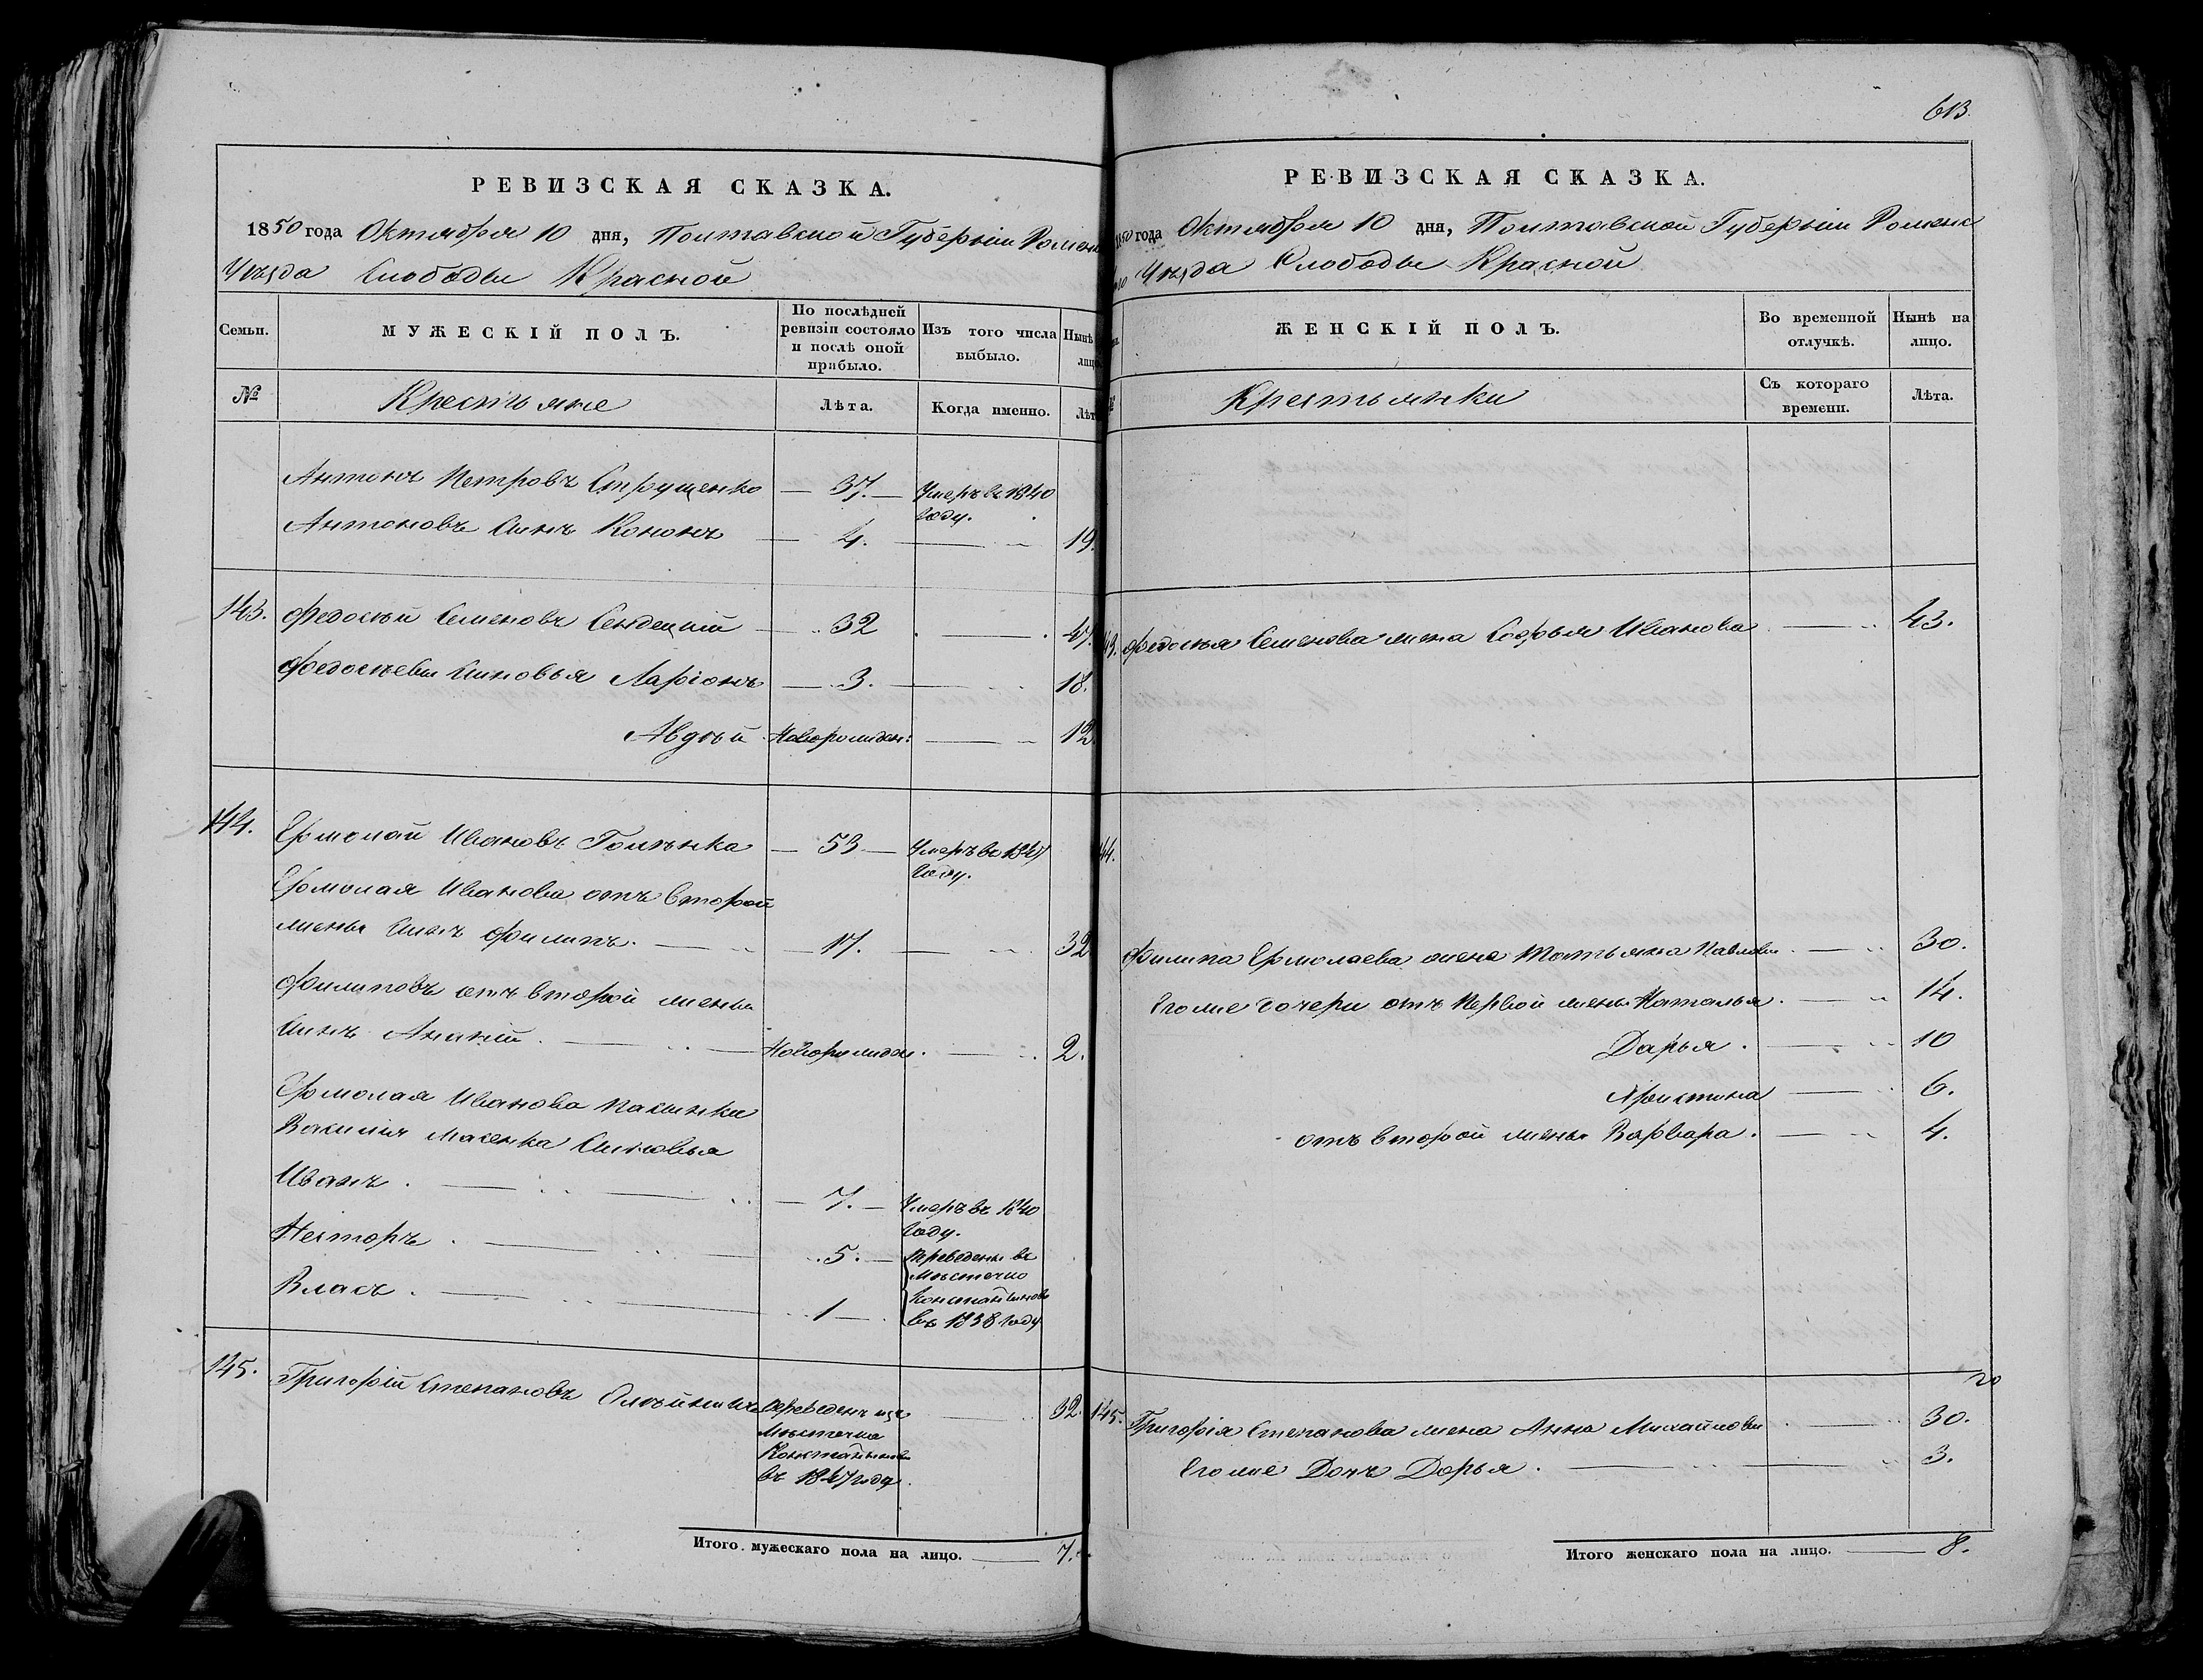 РЕВИЗСКАЯ СКАЗКА.
1850 года Октября 10 дня, Полтавской Губерніи Роменс
Уѣзда Слободы Красной
Семьи.
МУЖЕСКІЙ ПОЛЪ.
По послѣдней ревизіи состояло и послѣ оной прибыло.
Изъ того числа выбыло.
Нынѣ лицо
№
Крестьяне
Лѣта.
Когда именно.
Лѣт
Антонъ Петровъ Струценко — 37. — Умеръ въ 1840 году.
Антоновъ Сынъ Кононъ — 4. — 19.
143. Федосѣй Семеновъ Сендецкій — 32 — 47.
Федосѣевы Сыновья Ларіонъ — 3. — 18.
Авдѣй Новорожден: — 12.
144. Ермолай Ивановъ Голѣнка — 53 — Умеръ въ 1847 году.
Ермолая Иванова отъ второй
жены Сынъ Филипъ. — 17. — 32
Филиповъ отъ второй жены
Сынъ Ананій. — Новорожден. — 2.
Ермолая Иванова пасынка
Василія Масенка Сыновья
Иванъ. — 7. — Умеръ въ 1840 году.
Несторъ. — 5. — переведены въ
Мѣстечко
Власъ. — 1 — Константинов
въ 1838 году
145. Григорій Степановъ Олѣйникъ переведенъ изъ — 32.
Мѣстечка
Константинова
въ 1847 году.
Итого мужескаго пола на лицо. — 7.
613.
РЕВИЗСКАЯ СКАЗКА.
1850 года Октября 10 дня, Полтавской Губерніи Роменс
аго Уѣзда Слободы Красной
ЖЕНСКІЙ ПОЛЪ.
Во временной отлучкѣ.
Нынѣ на лицо.
Крестьянки
Съ котораго времени.
Лѣта.
43. Федосѣя Семенова жена Софья Иванова — 43.
44.
Филипа Ермолаева жена Татьяна Павлова — 30.
Его же дочери отъ первой жены Наталья. — 14.
Дарья. — 10
Христина — 6.
отъ второй жены Варвара. — 4.
145. Григорія Степанова жена Анна Михайлова — 30.
Его же Дочь Дарья. — 3.
Итого женскаго пола на лицо. — 8.